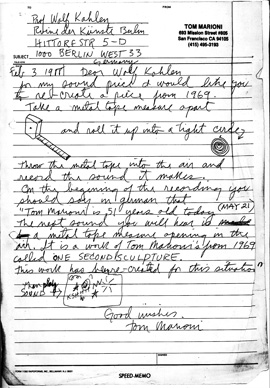 TOM MARIONI
693 Mission Street #605
San Francisco CA 94105
(415) 495-3193
Prof Wolf Kahlen
der Künste Berlin
5-0
SUBJECT 1000 BERLIN WEST 33
Germany
Feb. 3 Dear Wolf Kahlen
for my sound piece I would like you
to re-create a piece from 1969.
Take a metal tape measure apart
and roll it up into a tight circle
Throw the metal tape into the air and
record the sound it makes.
On the beginning of the recording you
should say in german that
"Tom Marioni is 51 years old today (MAY 21)
The next sound you will hear is
a metal tape measure opening in the
air. It is a work of Tom Marioni's from 1969
called ONE SECOND SCULPTURE.
This work has been re-created for this situation"
Then play
SOUND
Good wishes
Tom Marioni
SPEED-MEMO